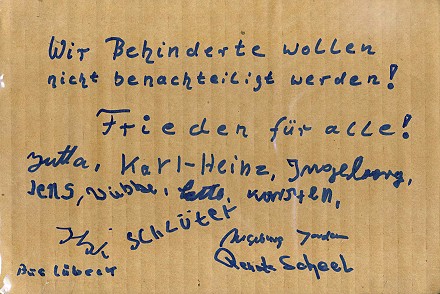 Wir Behinderte wollen
nicht benachteiligt werden!
Frieden für alle!
Jutta, Karl-Heinz, Ingeborg,
Jens, Wibke, Karsten,
Schlüter
Scheel
Bad Lübeck